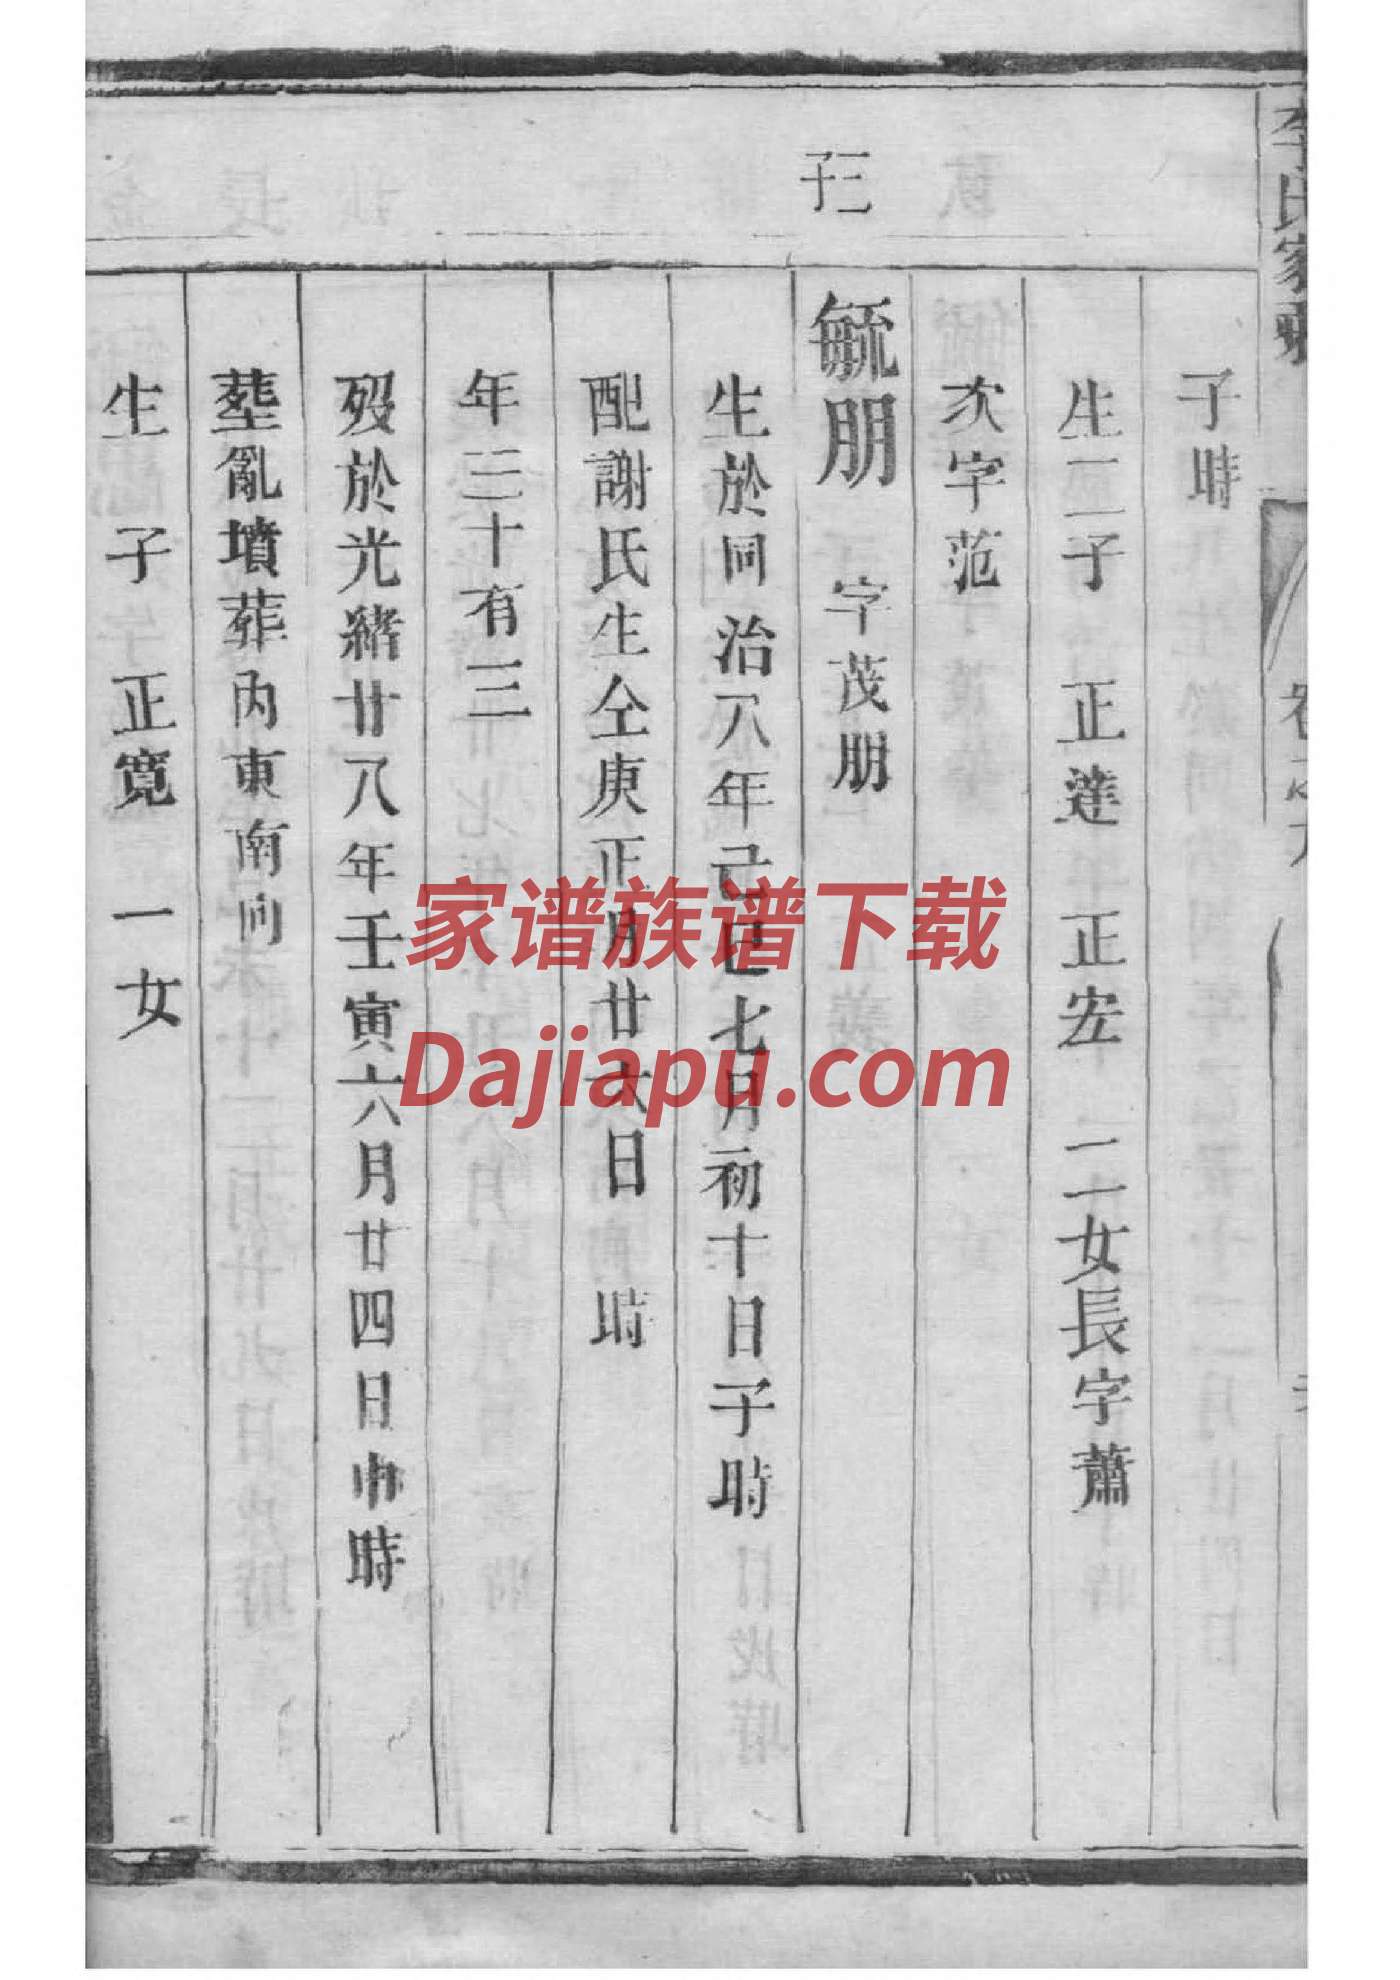 李氏家乘
子時
生二子 正達 正宏 二女長字蕭
次字范
三子
毓朋 字茂朋
生於同治八年己巳七月初十日子時
配謝氏生仝庚正月廿六日 時
年三十有三
歿於光緒廿八年壬寅六月廿四日申時
塟亂墳葬內東南向
生 子 正寬 一女
家谱族谱下载
Dajiapu.com